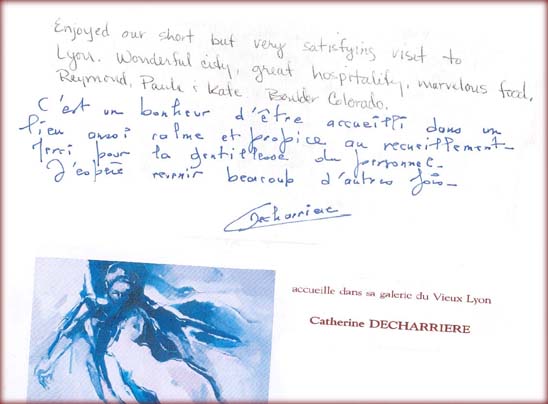 Enjoyed our short but very satisfying visit to
Lyon. Wonderful city, great hospitality, marvelous food.
Raymond, Paula & Kate. Boulder Colorado.
C'est un bonheur d'être accueilli dans un
lieu aussi calme et propice au recueillement.
Merci pour la gentillesse du personnel.
J'espère revenir beaucoup d'autres fois.
Decharriere
accueille dans sa galerie du Vieux Lyon
Catherine DECHARRIERE